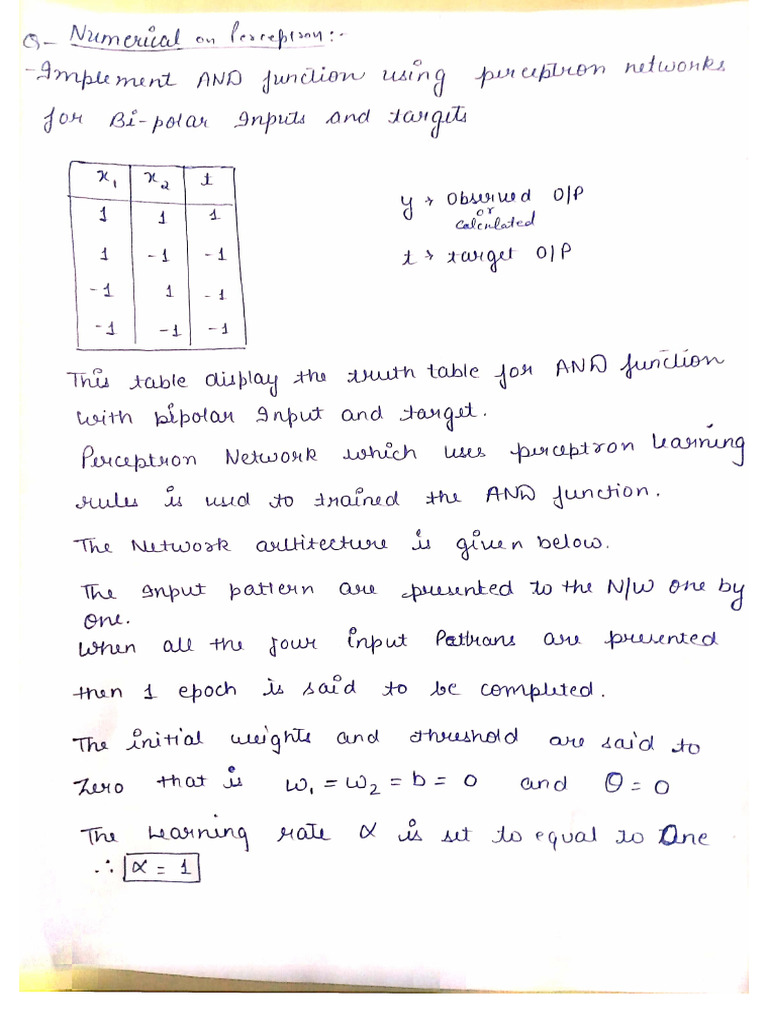 Q- Numerical on Perceptron:-
-Implement AND function using perceptron networks
for Bi-polar Inputs and targets
x₁ x₂ t
1 1 1
1 -1 -1
-1 1 -1
-1 -1 -1
y → Observed O/P
or
calculated
t → target O/P
This table display the truth table for AND function
with bipolar Input and target.
Perceptron Network which uses perceptron learning
rules is used to trained the AND function.
The Network arltitecture is given below.
The Input pattern are presented to the N/W one by
one.
When all the four input Pattrans are presented
then 1 epoch is said to be completed.
The initial weights and threshold are said to
Zero that is w₁ = w₂ = b = 0 and θ = 0
The Learning rate α is set to equal to One
∴ α = 1